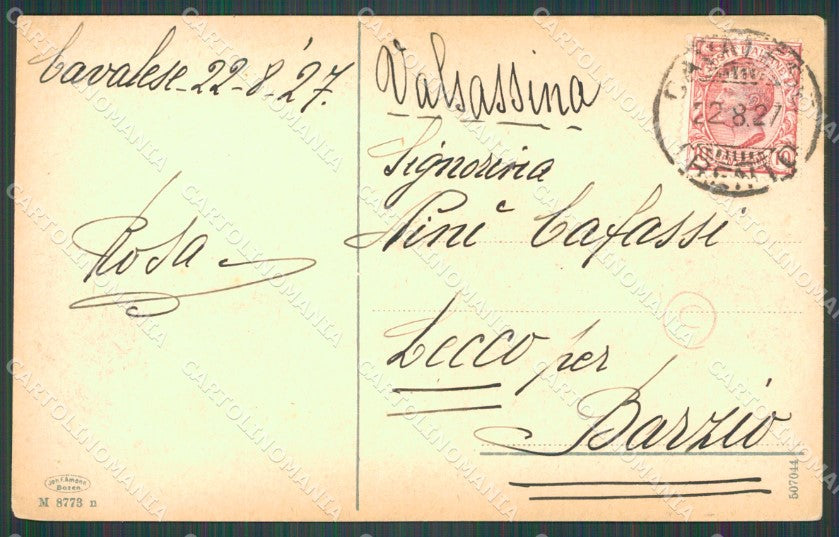 Cavalese-22-8-'27.
Rosa
Valsassina
Signorina
Nini Cafassi
Lecco per
Barzio
22.8.27
Joh. F. Amonn
Bozen.
M 8773 n
507044
CARTOLINOMANIA